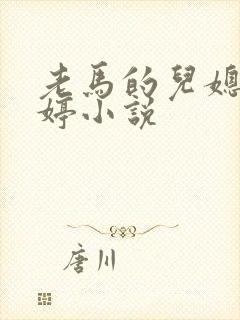 老馬的兒媳
婷小説
唐川